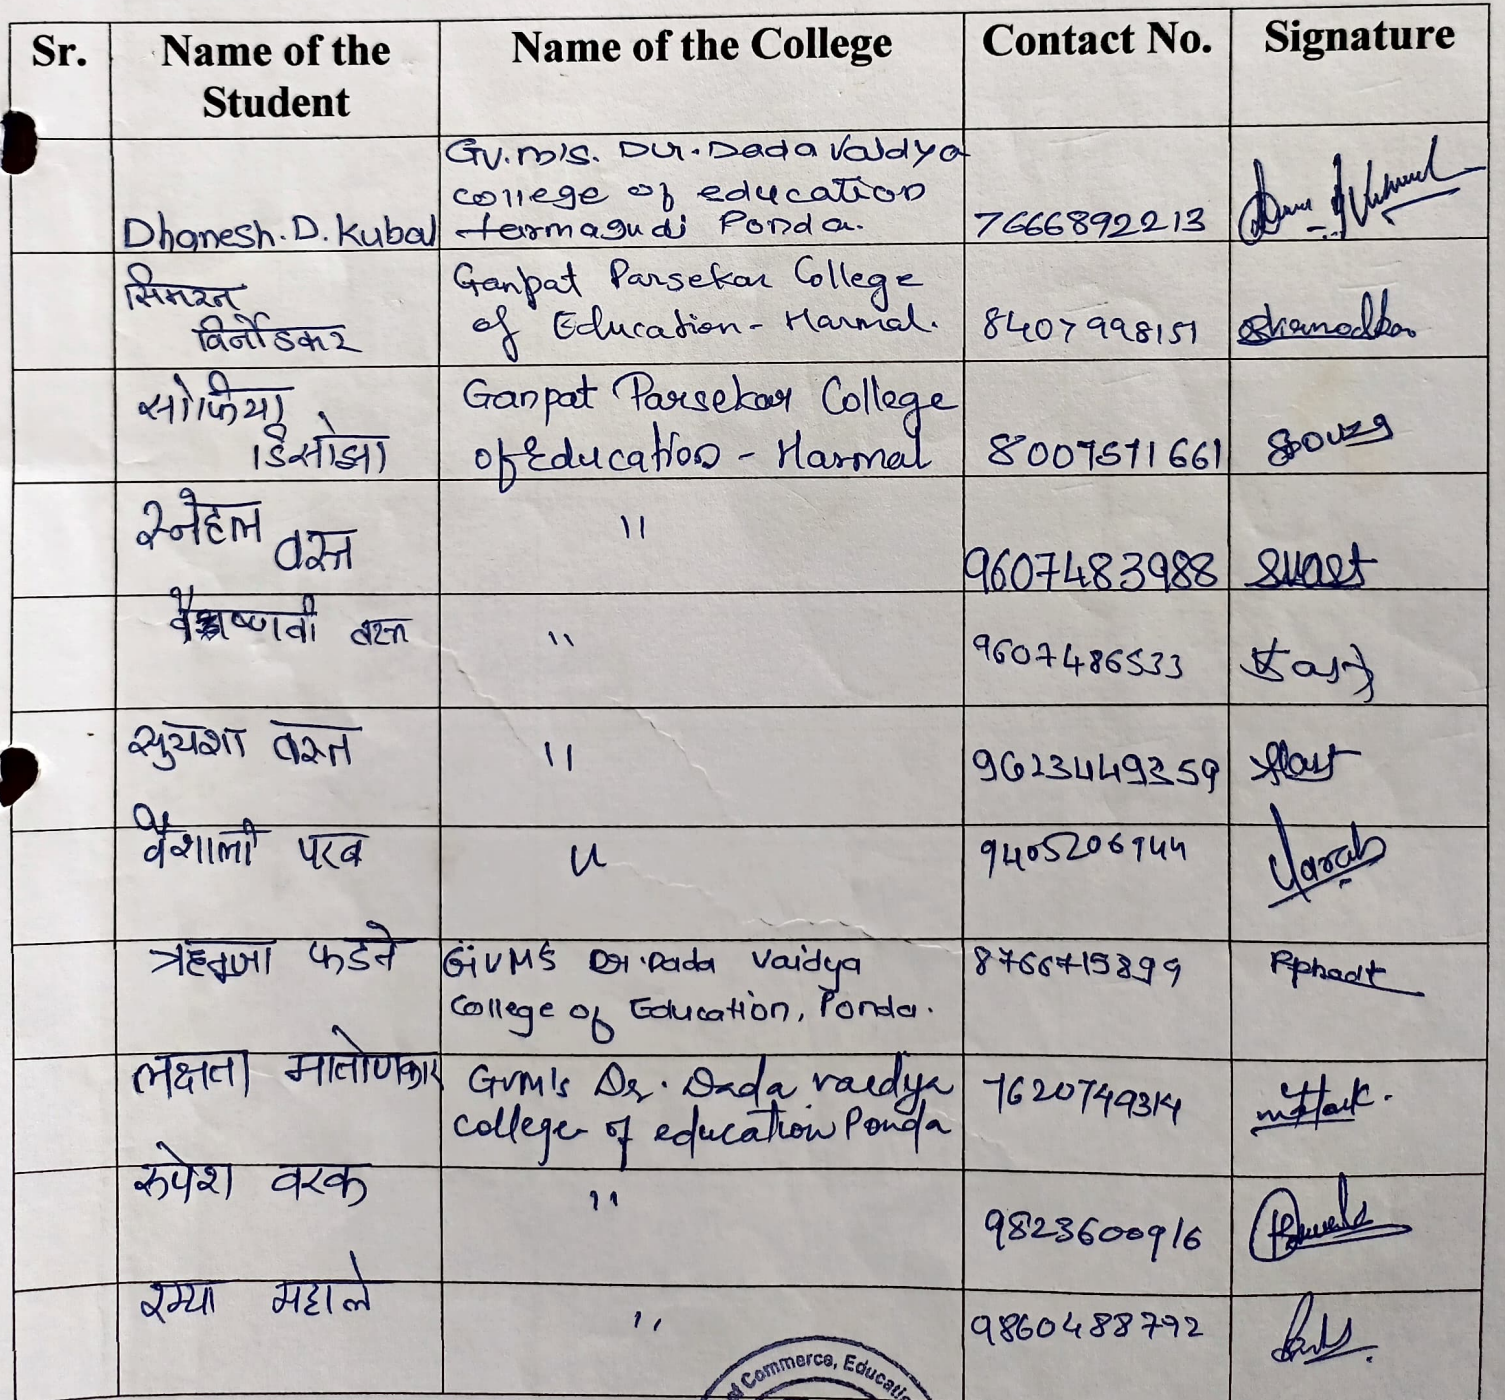 Sr. Name of the Student Name of the College Contact No. Signature
Dhanesh. D. Kubal GV.M's. Dr. Dada Vaidya
college of education
farmagudi Ponda. 7666892213
सिमरन
विर्नोडकर Ganpat Parsekar College
of Education - Harmal. 8407998151
सोफिया
डिसोझा Ganpat Parsekar College
of Education - Harmal 8007571661 Souza
स्नेहल वस्त " 9607483988 SVast
वैष्णवी वस्त " 9607486533 Vast
सुयशा वस्त " 9623449359
वैशाली परब " 9405206944 Parab
ऋतुजा फडते GVMS Dr. Dada Vaidya
College of Education, Ponda. 8766715899
लक्षता मातोणकार GVM's Dr. Dada Vaidya
college of education Ponda 7620749314
रुपेश वरक " 9823600916
रम्या महाले " 9860488792
Commerce, Educati